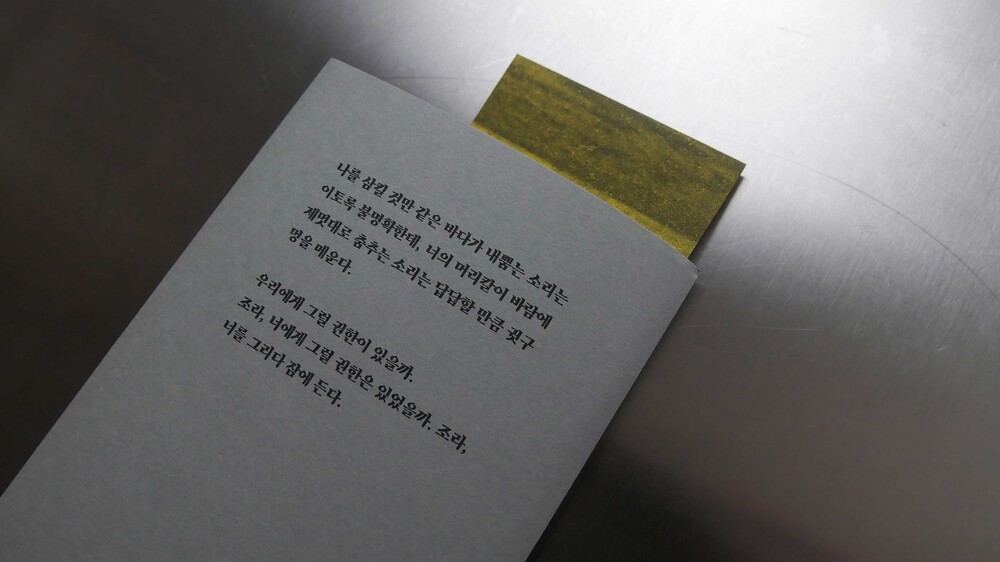 나를 삼킬 것만 같은 바다가 내뿜는 소리는
이토록 불명확한데, 너의 머리칼이 바람에
제멋대로 춤추는 소리는 답답할 만큼 귓구
멍을 메운다.
우리에게 그럴 권한이 있을까.
조라, 너에게 그럴 권한은 있었을까. 조라,
너를 그리다 잠에 든다.